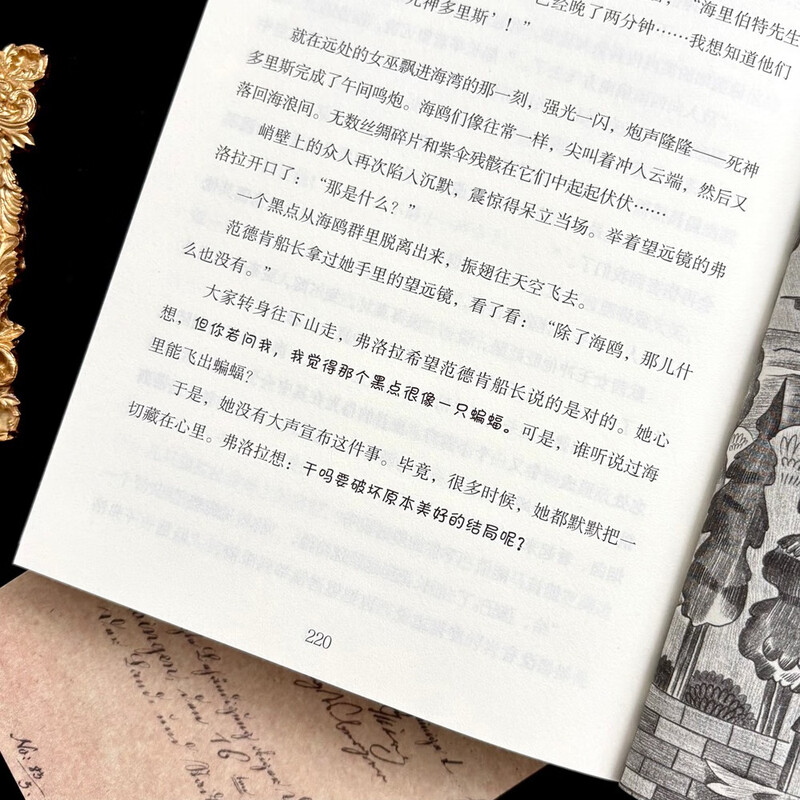 已经晚了两分钟……我想知道他们
“海里伯特先生
死神多里斯’！”
就在远处的女巫飘进海湾的那一刻，强光一闪，炮声隆隆——死神
多里斯完成了午间鸣炮。海鸥们像往常一样，尖叫着冲入云端，然后又
落回海浪间。无数丝绸碎片和紫伞残骸在它们中起起伏伏……
峭壁上的众人再次陷入沉默，震惊得呆立当场。举着望远镜的弗
洛拉开口了：“那是什么？”
一个黑点从海鸥群里脱离出来，振翅往天空飞去。
范德肯船长拿过她手里的望远镜，看了看：“除了海鸥，那儿什
么也没有。”
大家转身往下山走，弗洛拉希望范德肯船长说的是对的。她心
想，但你若问我，我觉得那个黑点很像一只蝙蝠。可是，谁听说过海
里能飞出蝙蝠？
于是，她没有大声宣布这件事。毕竟，很多时候，她都默默把一
切藏在心里。弗洛拉想：干吗要破坏原本美好的结局呢？
220
No: 83